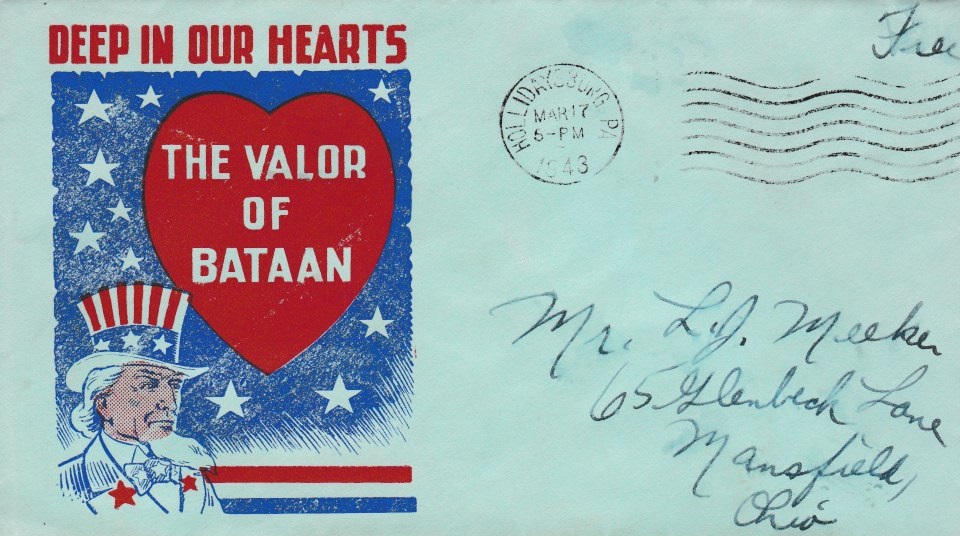 DEEP IN OUR HEARTS
THE VALOR
OF
BATAAN
Free
HOLLIDAYSBURG, PA
MAR 17
5-PM
1943
Mr. L.J. Meeker
65 Glenbeck Lane
Mansfield,
Ohio